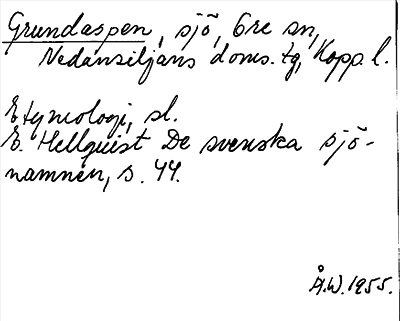 Grundaspen, sjö, Ore sn,
Nedansiljans doms. tg, Kopp. l.
Etymologi, sl.
E. Hellquist De svenska sjö-
namnen, s. 44.
Å.W. 1955.